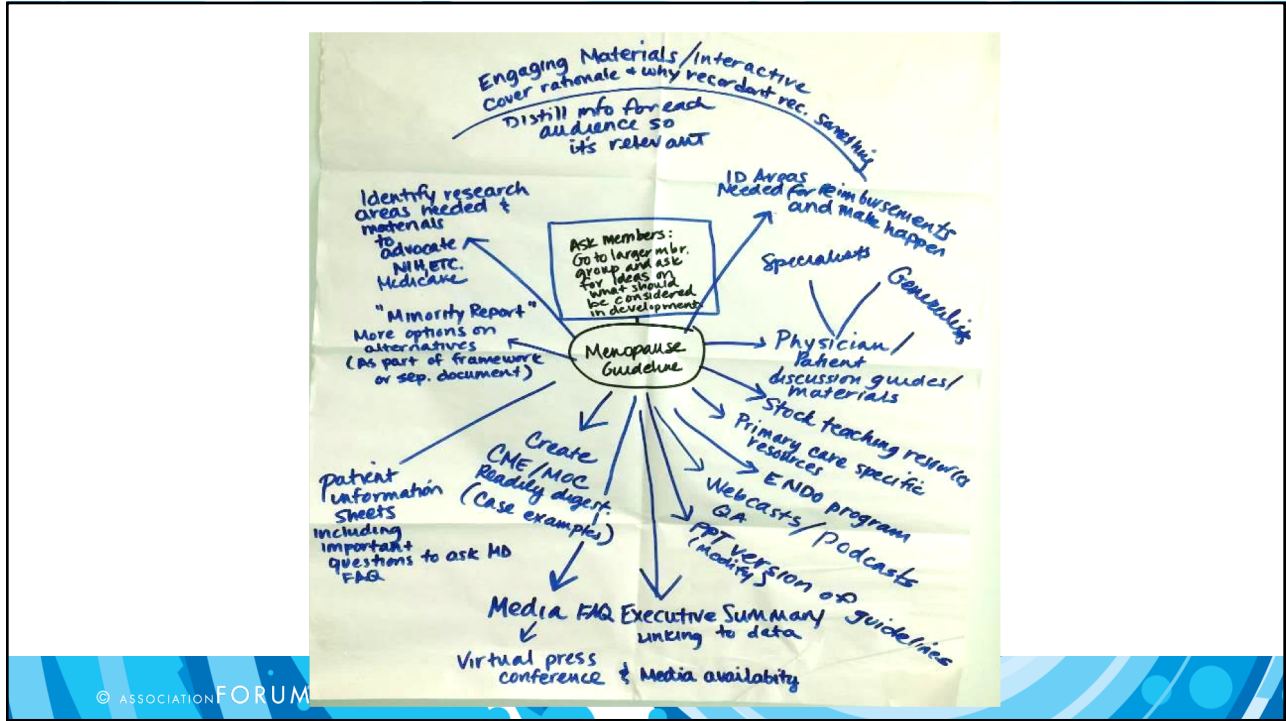 Engaging Materials/interactive
Cover rationale & why rec or dont rec. something
Distill info for each
audience so
it's relevant
Identify research
areas needed &
materials
to
advocate
NIH, ETC.
Medicare
ID Areas
Needed for reimbursements
and make happen
Ask members:
Go to larger mbr.
group and ask
for ideas on
what should
be considered
in development
Specialists
Generalists
"Minority Report"
More options on
alternatives
(As part of framework
or sep. document)
Menopause
Guideline
Physician/
Patient
discussion guides/
materials
Stock teaching resources
Primary care specific
resources
ENDO program
Webcasts/podcasts
QA
PPT version of guidelines
(modify)
Create
CME/MOC
Readily digest.
(case examples)
patient
information
sheets
including
important
questions to ask MD
FAQ
Media FAQ
Executive Summary
linking to data
Virtual press
conference & Media availabity
© ASSOCIATION FORUM